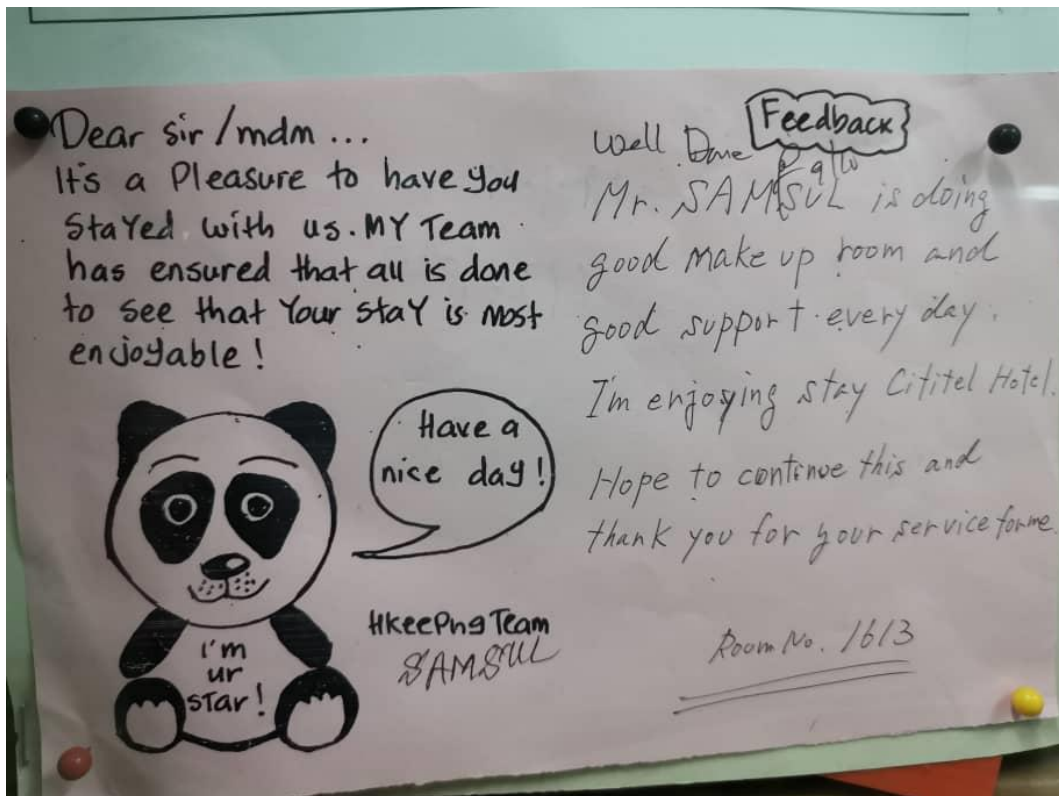 Dear sir/mdm ...
It's a Pleasure to have you
stayed with us. MY Team
has ensured that all is done
to see that Your stay is most
enjoyable!
Have a
nice day!
I'm
ur
star!
HkeePng Team
SAMSUL
Feedback
Well Done
Mr. SAMSUL is doing
good make up room and
good support every day.
I'm enjoying stay Cititel Hotel.
Hope to continue this and
thank you for your service for me.
Room No. 1613